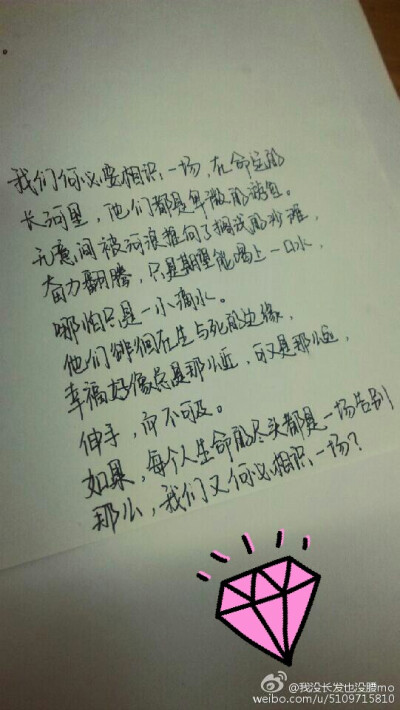 我们何必要相识一场,在命运的
长河里,他们都是卑微的
无意间被河浪推向了搁浅的沙滩,
奋力翻腾,只是期望能喝上一口水,
哪怕只是一小滴水。
他们徘徊在生与死的边缘,
幸福好像总是那么近,可又是那么远,
伸手,而不可及。
如果,每个人生命的尽头都是一场告别
那么,我们又何必相识一场?
@我没长发也没腰mo
weibo.com/u/5109715810